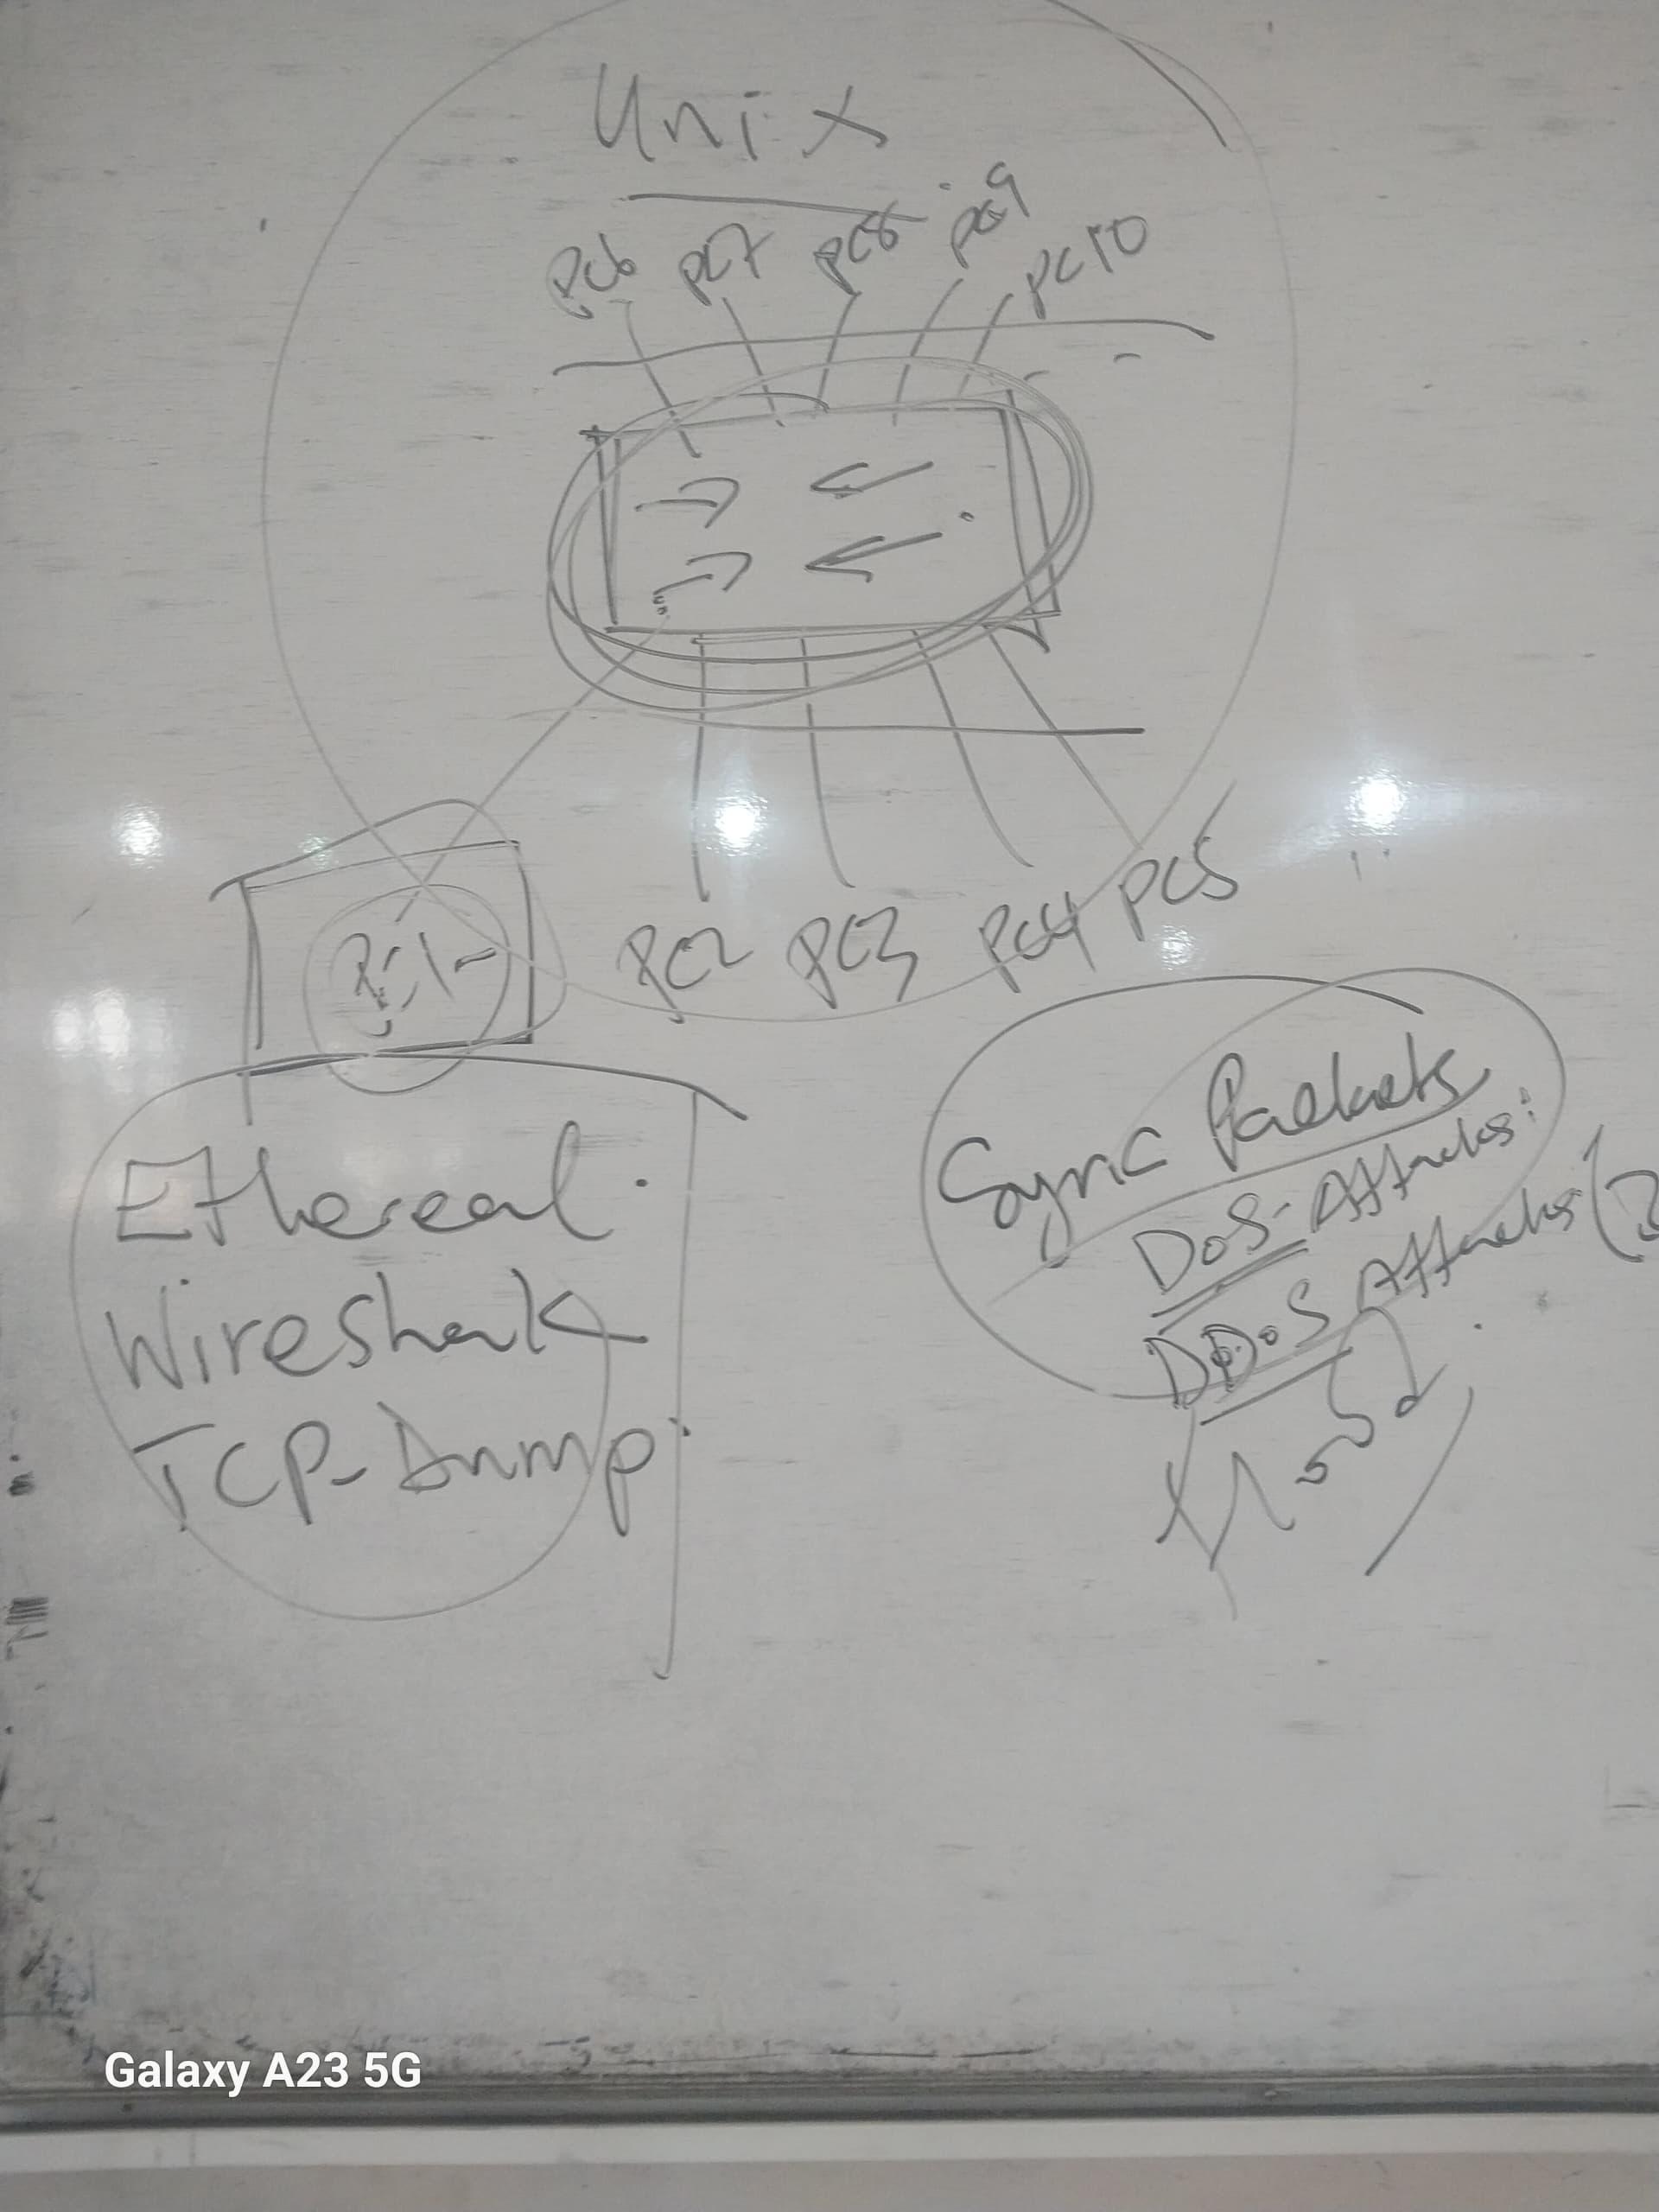 Unix
PC6 PC7 PC8 PC9 PC10
PC1 PC2 PC3 PC4 PC5
Ethereal
Wireshark
TCP-Dump
Sync Packets
DoS-Attacks:
DDoS Attacks
Galaxy A23 5G